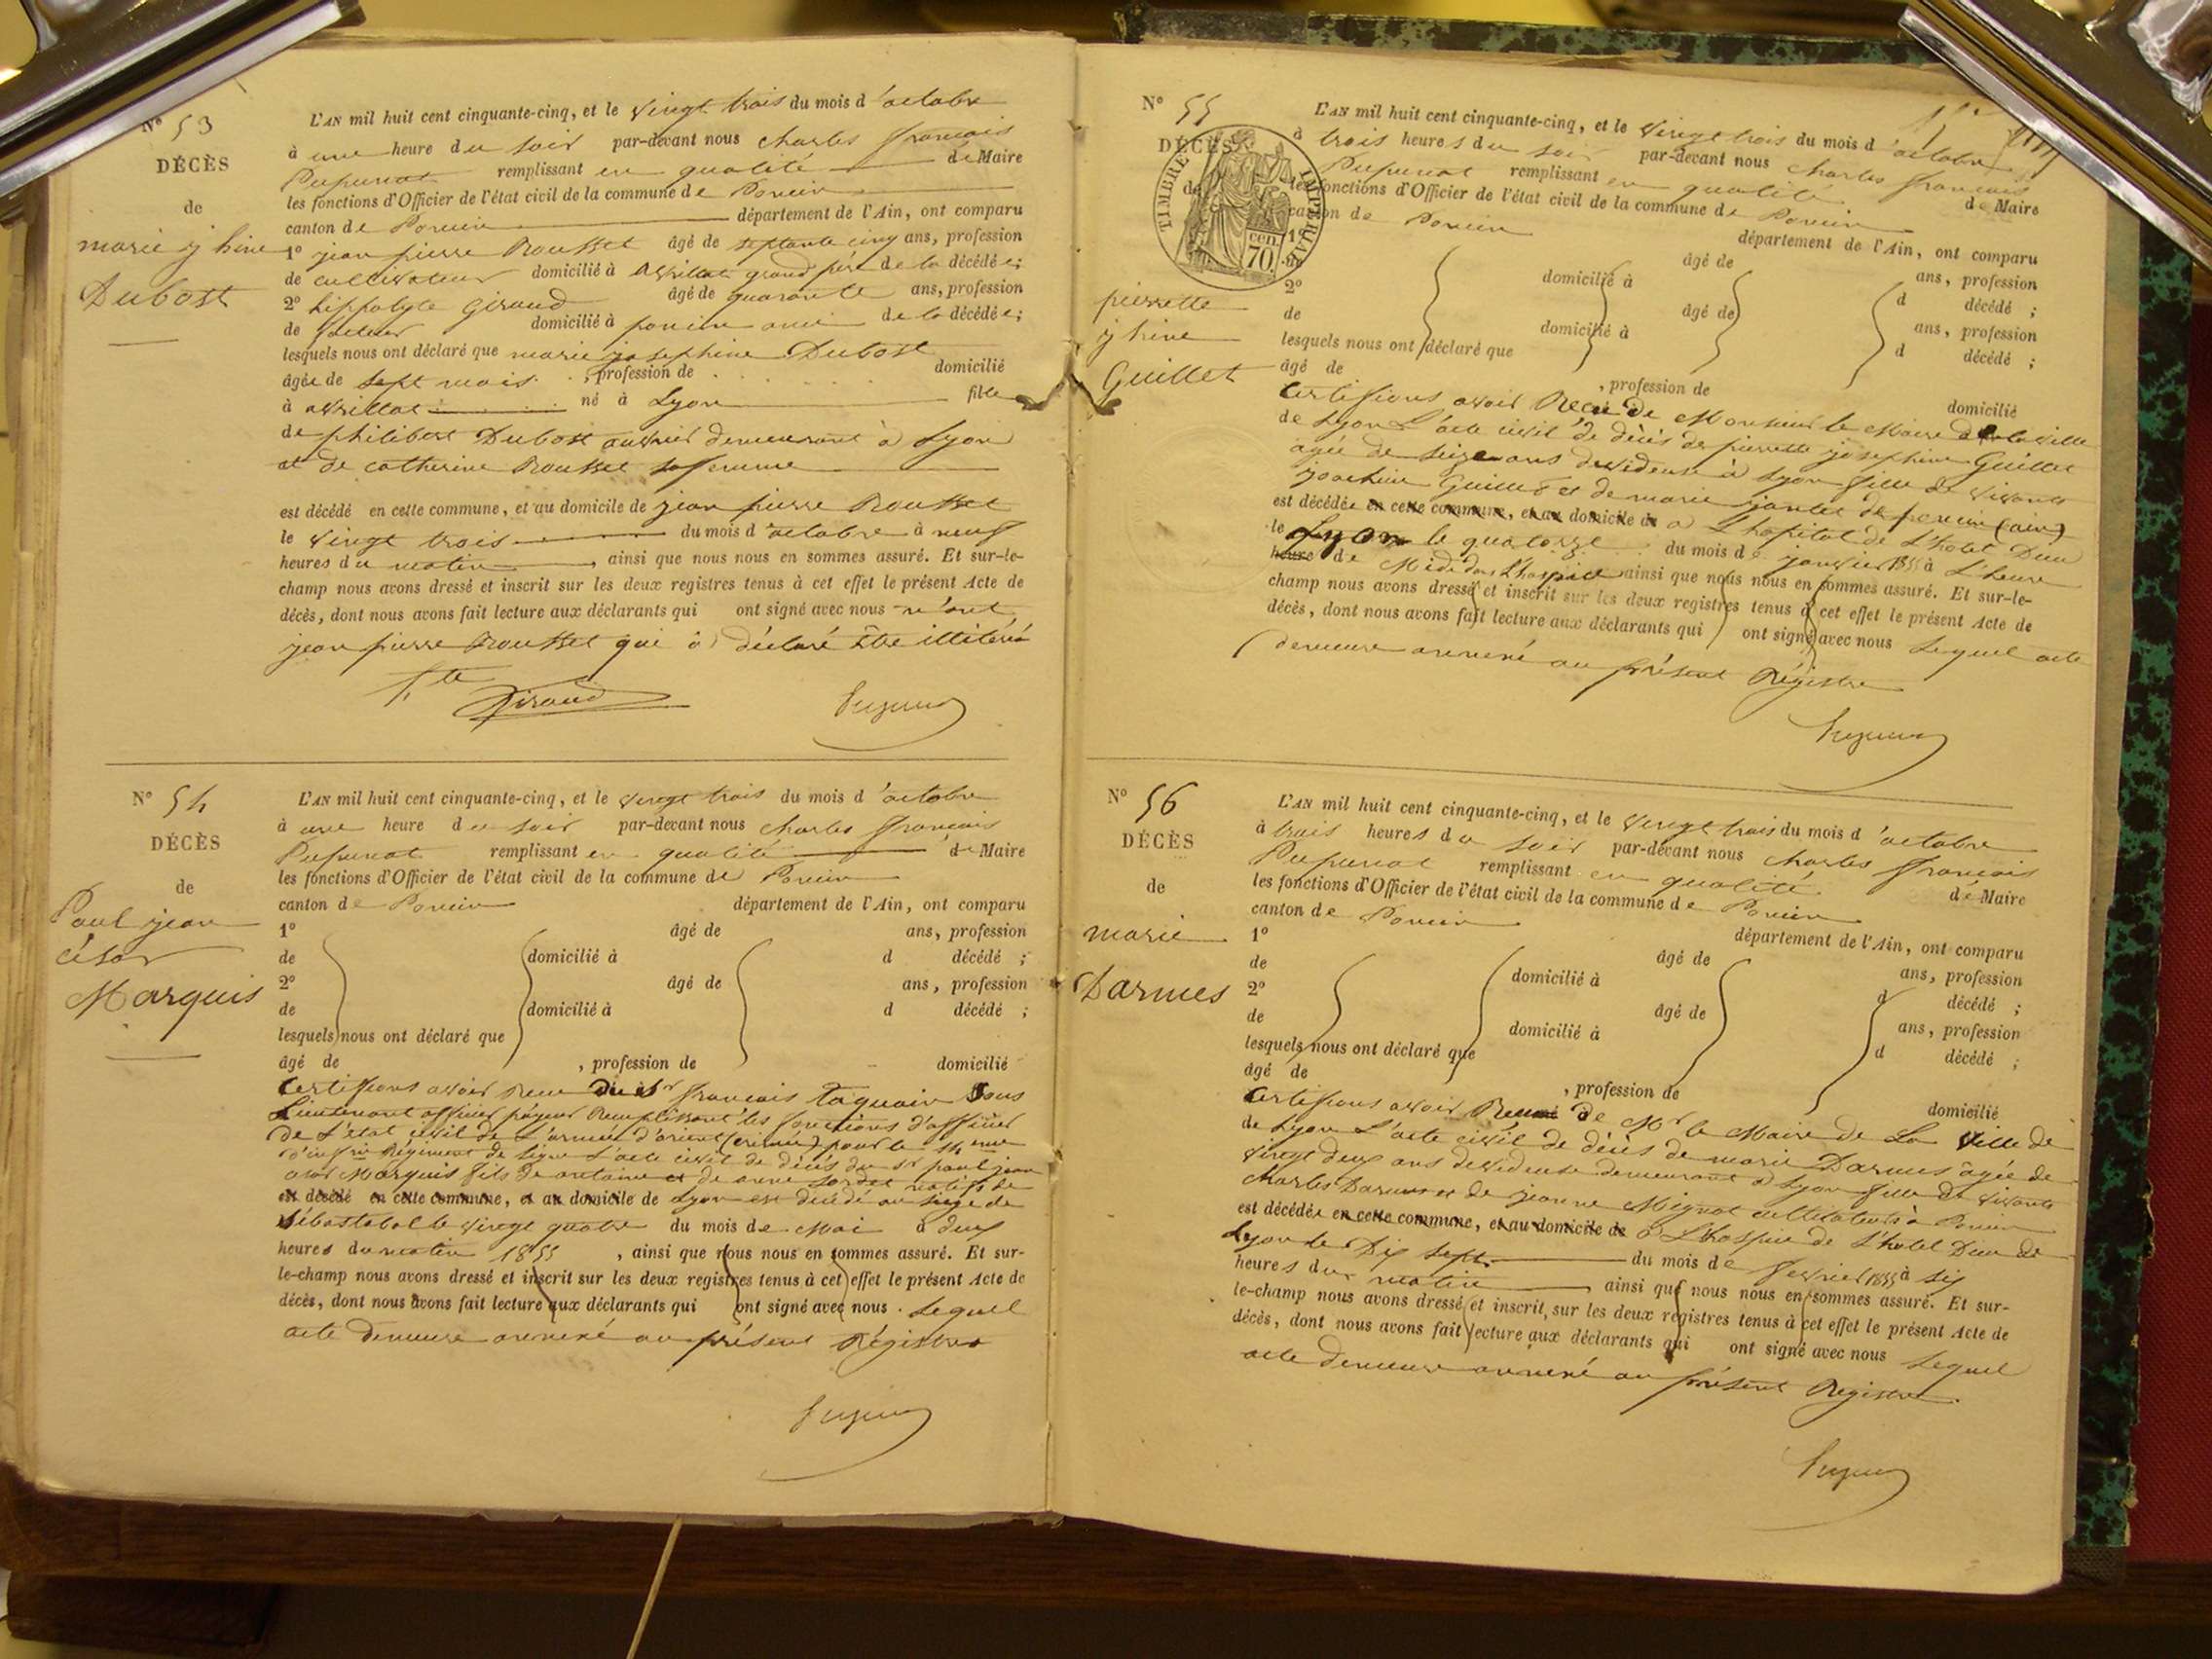 N° 53
DÉCÈS
de
marie jhine
Dubost
L'AN mil huit cent cinquante-cinq, et le vingt trois du mois d'octobre
à une heure du soir par-devant nous charles françois
Pupunat remplissant en qualité de Maire
les fonctions d'Officier de l'état civil de la commune de Poncin
canton de Poncin département de l'Ain, ont comparu
1° jean pierre Rousset âgé de septante cinq ans, profession
de cultivateur domicilié à Avrillat grand père de la décédée;
2° hippolyte Giraud âgé de quarante ans, profession
de facteur domicilié à poncin ami de la décédée;
lesquels nous ont déclaré que marie josephine Dubost
âgée de sept mois, profession de domicilié
à avrillat né à Lyon fille
de philibert Dubost ouvrier demeurant à Lyon
et de catherine Rousset sa femme
est décédé en cette commune, et au domicile de jean pierre Rousset
le vingt trois du mois d'octobre à neuf
heures du matin, ainsi que nous nous en sommes assuré. Et sur-le-
champ nous avons dressé et inscrit sur les deux registres tenus à cet effet le présent Acte de
décès, dont nous avons fait lecture aux déclarants qui ont signé avec nous
jean pierre Rousset qui a déclaré être illitéré
hte Giraud Pupunat
N° 54
DÉCÈS
de
Paul jean
césar
Marquis
L'AN mil huit cent cinquante-cinq, et le vingt trois du mois d'octobre
à une heure du soir par-devant nous charles françois
Pupunat remplissant en qualité de Maire
les fonctions d'Officier de l'état civil de la commune de Poncin
canton de Poncin département de l'Ain, ont comparu
1° âgé de ans, profession
de domicilié à d décédé ;
2° âgé de ans, profession
de domicilié à d décédé ;
lesquels nous ont déclaré que
âgé de , profession de domicilié
certifions avoir reçu du sr françois Taquain Sous
Lieutenant officier payeur Remplissant les fonctions d'officier
de L'état civil de L'armée d'orient (crimée) pour le 14 eme
Régiment de Ligne L'acte civil de décès du sr paul jean
Marquis fils de antoine et de anne natif de
est décédé en cette commune, et au domicile de Lyon est décédé au siège de
Sébastobol le vingt quatre du mois de Mai à deux
heures du matin 1855 , ainsi que nous nous en sommes assuré. Et sur-
le-champ nous avons dressé et inscrit sur les deux registres tenus à cet effet le présent Acte de
décès, dont nous avons fait lecture aux déclarants qui ont signé avec nous. Lequel
acte demeure annexé au présent Régistre
Pupunat
N° 55
DÉCÈS
de
TIMBRE IMPÉRIAL
70 cen.
pierrette
jhine
Guillet
L'AN mil huit cent cinquante-cinq, et le vingt trois du mois d'octobre
à trois heures du soir par-devant nous charles françois
Pupunat remplissant en qualité de Maire
les fonctions d'Officier de l'état civil de la commune de Poncin
canton de Poncin département de l'Ain, ont comparu
1° âgé de ans, profession
de domicilié à d décédé ;
2° âgé de ans, profession
de domicilié à d décédé ;
lesquels nous ont déclaré que
âgé de , profession de domicilié
Certifions avoir Reçu de Monsieur le Maire de la ville
de Lyon L'acte civil de décès de pierrette josephine Guillet
agée de seize ans devideuse à Lyon fille de vivants
joachim Guillet et de marie jantet de poncin (ain)
est décédée en cette commune, et au domicile de à L'hopital de L'hotel Dieu
le Lyon le quatorze du mois de janvier 1855 à L'heure
heure de Midi dans L'hospice ainsi que nous nous en sommes assuré. Et sur-le-
champ nous avons dressé et inscrit sur les deux registres tenus à cet effet le présent Acte de
décès, dont nous avons fait lecture aux déclarants qui ont signé avec nous Lequel acte
demeure annexé au présent Régistre
Pupunat
N° 56
DÉCÈS
de
marie
Darmes
L'AN mil huit cent cinquante-cinq, et le vingt trois du mois d'octobre
à trois heures du soir par-devant nous charles françois
Pupunat remplissant en qualité de Maire
les fonctions d'Officier de l'état civil de la commune de Poncin
canton de Poncin département de l'Ain, ont comparu
1° âgé de ans, profession
de domicilié à d décédé ;
2° âgé de ans, profession
de domicilié à d décédé ;
lesquels nous ont déclaré que
âgé de , profession de domicilié
Certifions avoir Reçu de Mr le Maire de La Ville de
Lyon L'acte civil de décès de marie Darmes âgée de
vingt deux ans devideuse demeurant à Lyon fille de vivants
charles Darmes et de jeanne Mignot cultivateurs à Poncin
est décédée en cette commune, et au domicile de à L'hospice de L'hotel Dieu de
Lyon le Dix sept du mois de fevrier 1855 à six
heures du matin ainsi que nous nous en sommes assuré. Et sur-
le-champ nous avons dressé et inscrit, sur les deux registres tenus à cet effet le présent Acte de
décès, dont nous avons fait lecture aux déclarants qui ont signé avec nous Lequel
acte demeure annexé au présent Régistre.
Pupunat